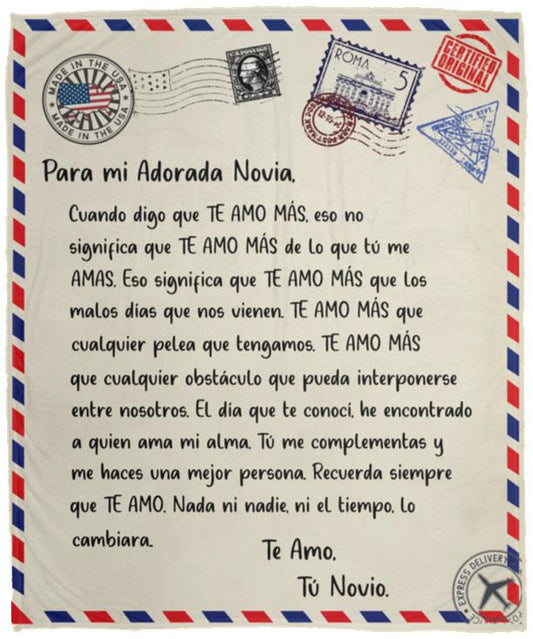 MADE IN THE USA
MADE IN THE USA
U.S. POSTAGE
ROMA
5
CERTIFIED
ORIGINAL
Para mi Adorada Novia,
Cuando digo que TE AMO MÁS, eso no
significa que TE AMO MÁS de lo que tú me
AMAS. Eso significa que TE AMO MÁS que los
malos días que nos vienen. TE AMO MÁS que
cualquier pelea que tengamos. TE AMO MÁS
que cualquier obstáculo que pueda interponerse
entre nosotros. El día que te conocí, he encontrado
a quien ama mi alma. Tú me complementas y
me haces una mejor persona. Recuerda siempre
que TE AMO. Nada ni nadie, ni el tiempo, lo
cambiara.
Te Amo,
Tú Novio.
EXPRESS DELIVERY